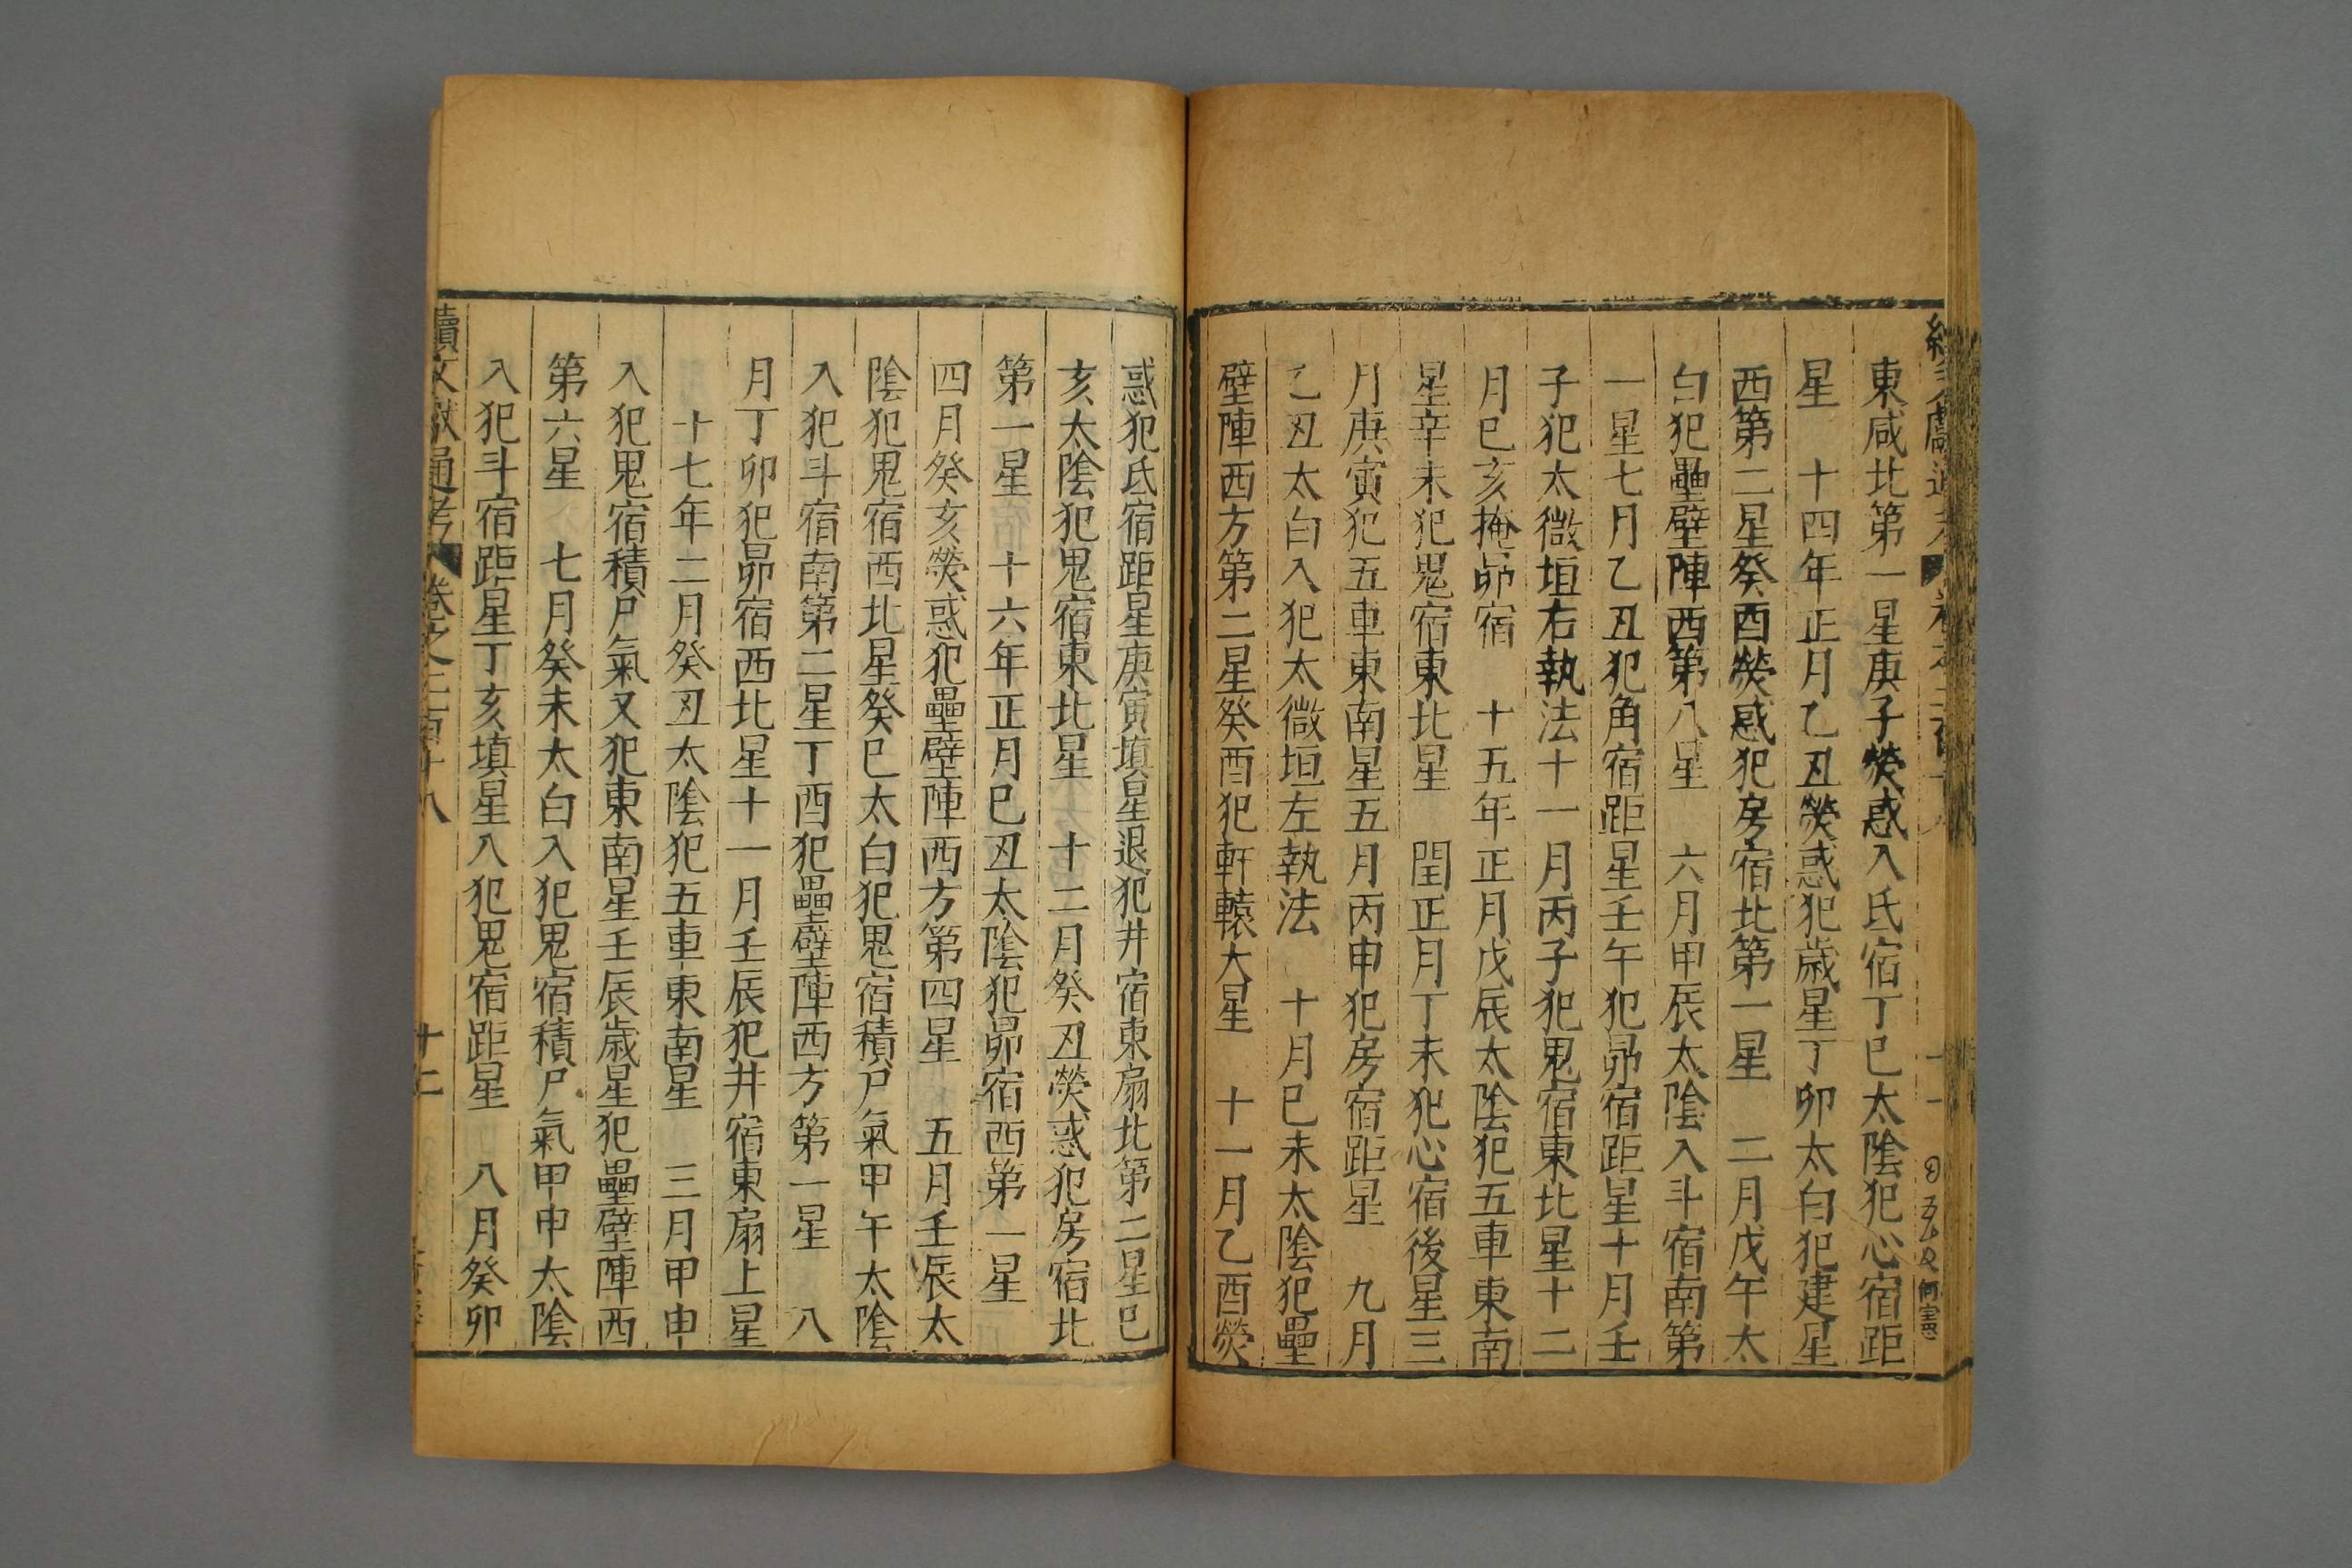 東咸北第一星庚子熒惑入氐宿丁巳太陰犯心宿距
星　十四年正月乙丑熒惑犯歲星丁卯太白犯建星
西第二星癸酉熒惑犯房宿北第一星　二月戊午太
白犯壘壁陣西第八星　六月甲辰太陰入斗宿南第
一星七月乙丑犯角宿距星壬午犯昴宿距星十月壬
子犯太微垣右執法十一月丙子犯鬼宿東北星十二
月巳亥掩昴宿　十五年正月戊辰太陰犯五車東南
星辛未犯鬼宿東北星　閏正月丁未犯心宿後星三
月庚寅犯五車東南星五月丙申犯房宿距星　九月
乙丑太白入犯太微垣左執法　十月巳未太陰犯壘
壁陣西方第二星癸酉犯軒轅大星　十一月乙酉熒
惑犯氐宿距星庚寅填星退犯井宿東扇北第二星巳
亥太陰犯鬼宿東北星　十二月癸丑熒惑犯房宿北
第一星　十六年正月巳丑太陰犯昴宿西第一星
四月癸亥熒惑犯壘壁陣西方第四星　五月壬辰太
陰犯鬼宿西北星癸巳太白犯鬼宿積尸氣甲午太陰
入犯斗宿南第二星丁酉犯壘壁陣西方第一星　八
月丁卯犯昴宿西北星十一月壬辰犯井宿東扇上星
十七年二月癸丑太陰犯五車東南星　三月甲申
入犯鬼宿積尸氣又犯東南星壬辰歲星犯壘壁陣西
第六星　七月癸未太白入犯鬼宿積尸氣甲申太陰
入犯斗宿距星丁亥填星入犯鬼宿距星　八月癸卯
續文獻通考　卷之二百十八　十二